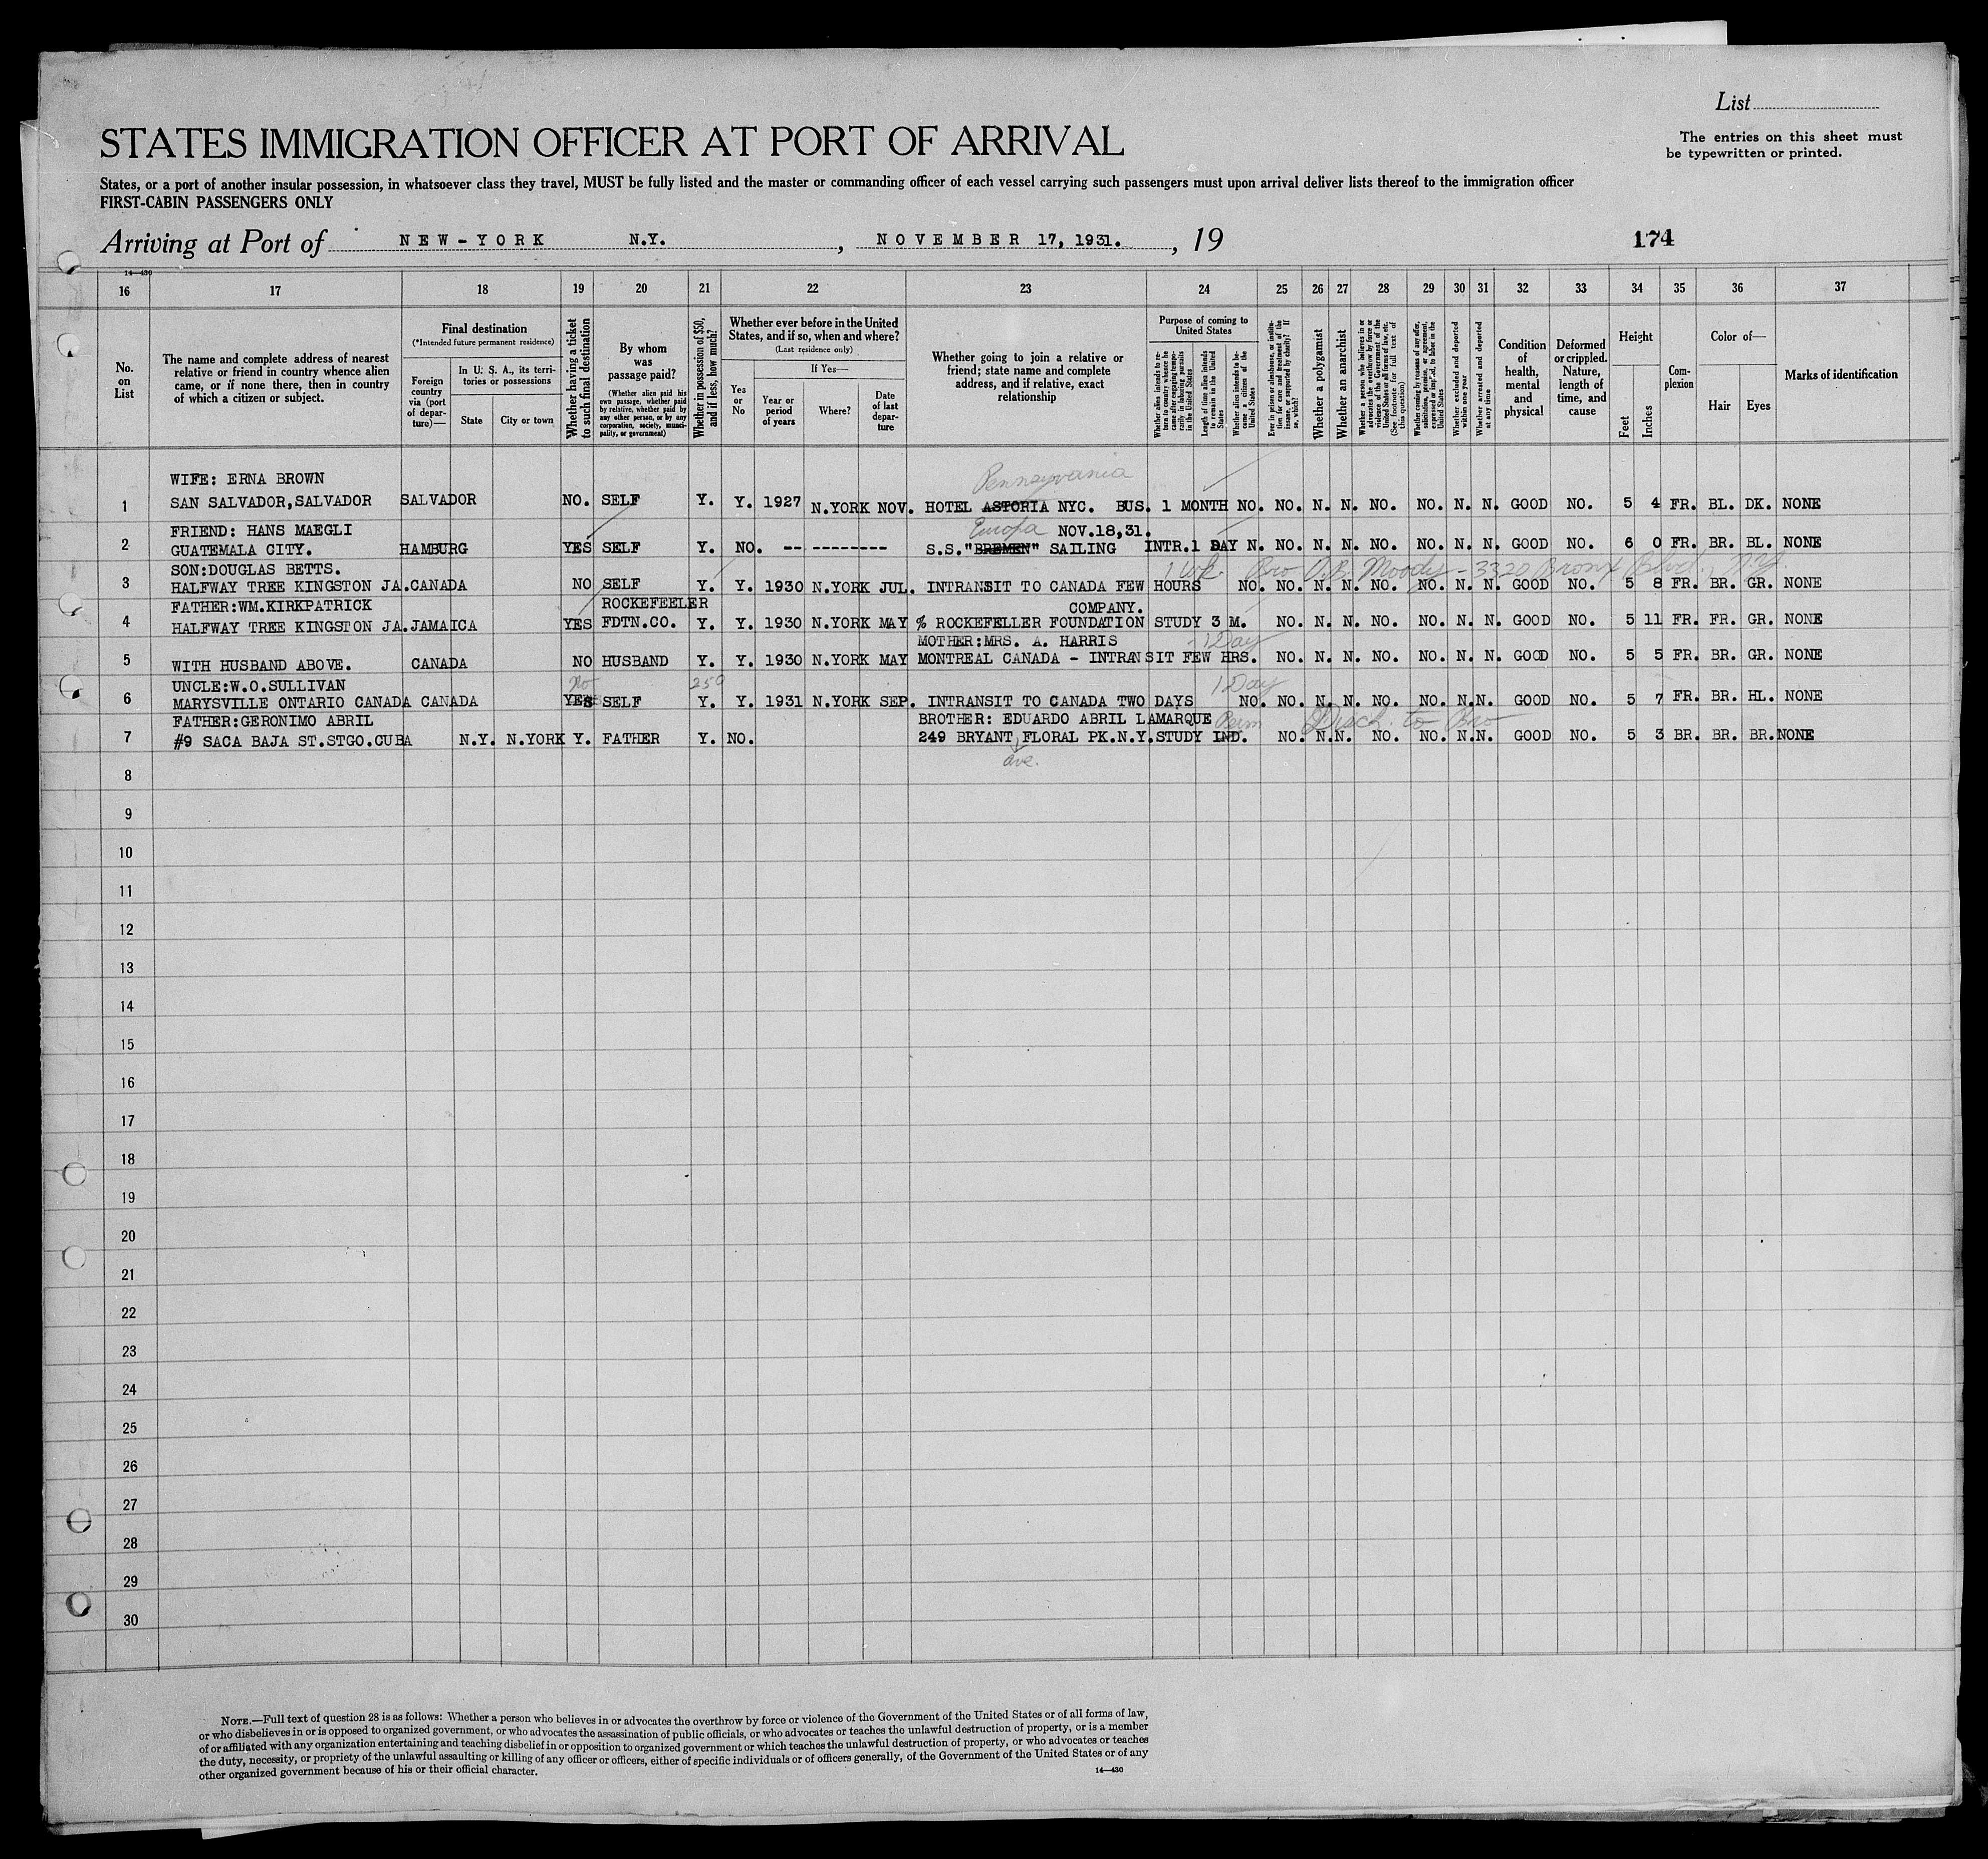 List
STATES IMMIGRATION OFFICER AT PORT OF ARRIVAL
The entries on this sheet must
be typewritten or printed.
States, or a port of another insular possession, in whatsoever class they travel, MUST be fully listed and the master or commanding officer of each vessel carrying such passengers must upon arrival deliver lists thereof to the immigration officer
FIRST-CABIN PASSENGERS ONLY
Arriving at Port of NEW-YORK N.Y. , NOVEMBER 17, 1931. , 19
174
14—430
16 17 18 19 20 21 22 23 24 25 26 27 28 29 30 31 32 33 34 35 36 37
No. on List
The name and complete address of nearest relative or friend in country whence alien came, or if none there, then in country of which a citizen or subject.
Final destination
(*Intended future permanent residence)
Foreign country via (port of departure)—
In U. S. A., its territories or possessions
State
City or town
Whether having a ticket to such final destination
By whom was passage paid?
(Whether alien paid his own passage, whether paid by relative, whether paid by any other person, or by any corporation, society, municipality, or government)
Whether in possession of $50, and if less, how much?
Whether ever before in the United States, and if so, when and where?
(Last residence only)
Yes or No
If Yes—
Year or period of years
Where?
Date of last departure
Whether going to join a relative or friend; state name and complete address, and if relative, exact relationship
Purpose of coming to United States
Whether alien intends to return to country whence he came after engaging temporarily in laboring pursuits in the United States
Length of time alien intends to remain in the United States
Whether alien intends to become a citizen of the United States
Ever in prison or almshouse, or institution for care and treatment of the insane, or supported by charity? If so, which?
Whether a polygamist
Whether an anarchist
(See footnote for full text of this question)
Whether excluded and deported within one year
Whether arrested and deported at any time
Condition of health, mental and physical
Deformed or crippled. Nature, length of time, and cause
Height
Feet
Inches
Complexion
Color of—
Hair
Eyes
Marks of identification
WIFE: ERNA BROWN Pennsylvania
1 SAN SALVADOR,SALVADOR SALVADOR NO. SELF Y. Y. 1927 N.YORK NOV. HOTEL ASTORIA NYC. BUS. 1 MONTH NO. NO. N. N. NO. NO. N. N. GOOD NO. 5 4 FR. BL. DK. NONE
FRIEND: HANS MAEGLI Europa NOV.18,31.
2 GUATEMALA CITY. HAMBURG YES SELF Y. NO. -- -------- S.S."BREMEN" SAILING INTR.1 DAY N. NO. N. N. NO. NO. N. N. GOOD NO. 6 0 FR. BR. BL. NONE
SON:DOUGLAS BETTS. Bro Moody - 3320 Bronx Blvd., N.Y.
3 HALFWAY TREE KINGSTON JA.CANADA NO SELF Y. Y. 1930 N.YORK JUL. INTRANSIT TO CANADA FEW HOURS NO. NO. N. N. NO. NO. N. N. GOOD NO. 5 8 FR. BR. GR. NONE
FATHER:WM.KIRKPATRICK ROCKEFEELER COMPANY.
4 HALFWAY TREE KINGSTON JA.JAMAICA YES FDTN.CO. Y. Y. 1930 N.YORK MAY % ROCKEFELLER FOUNDATION STUDY 3 M. NO. N. N. NO. NO. N. N. GOOD NO. 5 11 FR. FR. GR. NONE
MOTHER:MRS. A. HARRIS 1 Day
5 WITH HUSBAND ABOVE. CANADA NO HUSBAND Y. Y. 1930 N.YORK MAY MONTREAL CANADA - INTRANSIT FEW HRS. NO. N. N. NO. NO. N. N. GOOD NO. 5 5 FR. BR. GR. NONE
UNCLE:W.O.SULLIVAN No 250 1 Day
6 MARYSVILLE ONTARIO CANADA CANADA YES SELF Y. Y. 1931 N.YORK SEP. INTRANSIT TO CANADA TWO DAYS NO. NO. N. N. NO. NO. N.N. GOOD NO. 5 7 FR. BR. HL. NONE
FATHER:GERONIMO ABRIL BROTHER: EDUARDO ABRIL LAMARQUE Perm Disch. to Bro
7 #9 SACA BAJA ST.STGO.CUBA N.Y. N.YORK Y. FATHER Y. NO. 249 BRYANT FLORAL PK.N.Y.STUDY IND. NO. N.N. NO. NO. N.N. GOOD NO. 5 3 BR. BR. BR.NONE
ave.
8
9
10
11
12
13
14
15
16
17
18
19
20
21
22
23
24
25
26
27
28
29
30
NOTE.—Full text of question 28 is as follows: Whether a person who believes in or advocates the overthrow by force or violence of the Government of the United States or of all forms of law,
or who disbelieves in or is opposed to organized government, or who advocates the assassination of public officials, or who advocates or teaches the unlawful destruction of property, or is a member
of or affiliated with any organization entertaining and teaching disbelief in or opposition to organized government or which teaches the unlawful destruction of property, or who advocates or teaches
the duty, necessity, or propriety of the unlawful assaulting or killing of any officer or officers, either of specific individuals or of officers generally, of the Government of the United States or of any
other organized government because of his or their official character.
14—430